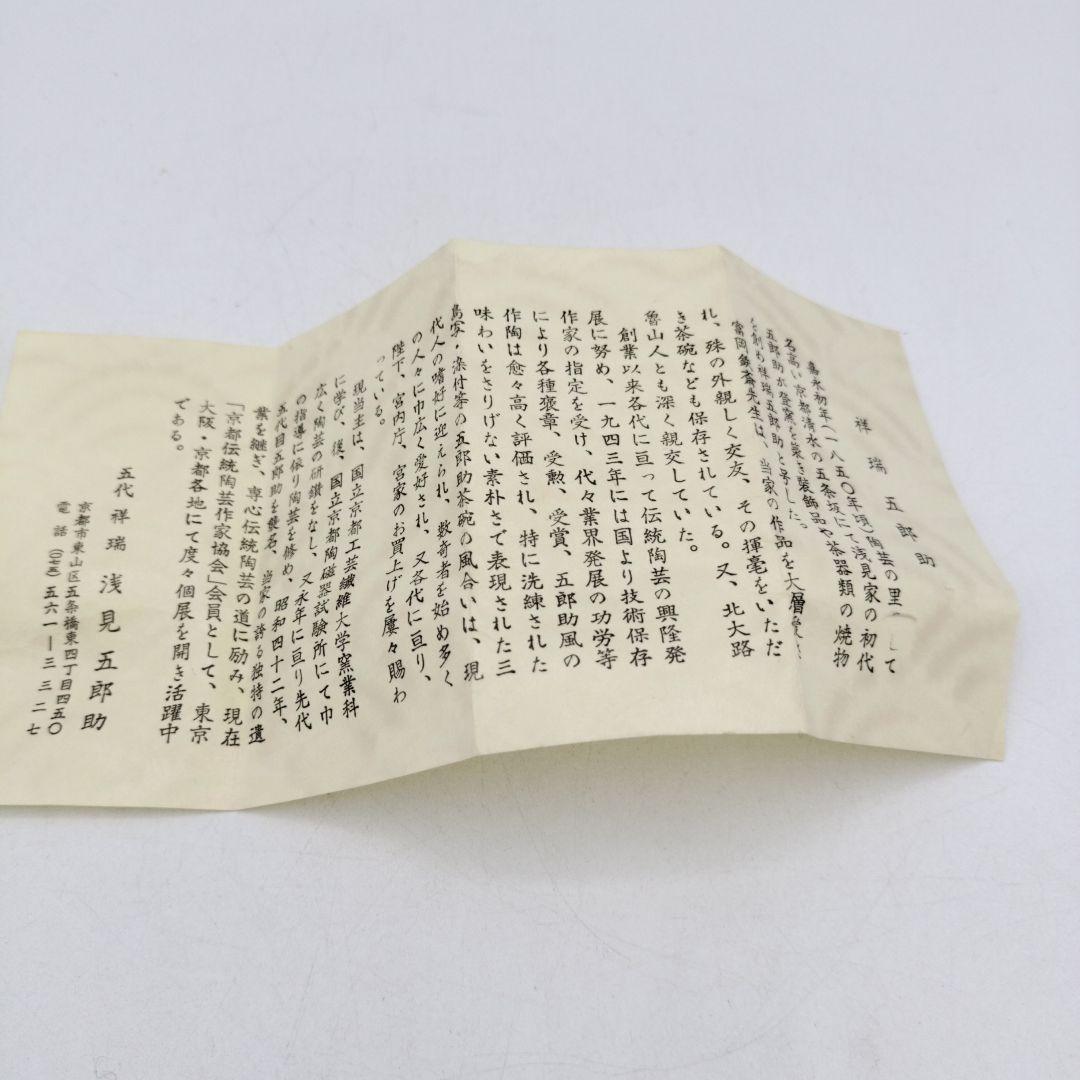 祥瑞五郎助
嘉永初年(一八五〇年頃)陶芸の里として
名高い京都清水の五条坂にて浅見家の初代
五郎助が登窯を築き装飾品や茶器類の焼物
を創め祥瑞五郎助と号した。
富岡鉄斎先生は、当家の作品を大層愛さ
れ、殊の外親しく交友、その揮毫をいただ
き茶碗なども保存されている。又、北大路
魯山人とも深く親交していた。
創業以来各代に亘って伝統陶芸の興隆発
展に努め、一九四三年には国より技術保存
作家の指定を受け、代々業界発展の功労等
により各種褒章、受勲、受賞、五郎助風の
作陶は愈々高く評価され、特に洗練された
味わいをさりげない素朴さで表現された三
島写・染付等の五郎助茶碗の風合いは、現
代人の嗜好に迎えられ、数奇者を始め多く
の人々に巾広く愛好され、又各代に亘り、
陛下、宮内庁、宮家のお買上げを屢々賜わ
っている。
現当主は、国立京都工芸繊維大学窯業科
に学び、後、国立京都陶磁器試験所にて巾
広く陶芸の研鑽をなし、又永年に亘り先代
の指導に依り陶芸を修め、昭和四十二年、
五代目五郎助を襲名、当家の誇る独特の遺
業を継ぎ、専心伝統陶芸の道に励み、現在
「京都伝統陶芸作家協会」会員として、東京
大阪・京都各地にて度々個展を開き活躍中
である。
五代祥瑞 浅見五郎助
京都市東山区五条橋東四丁目四五〇
電話(〇七五)五六一―三三二七